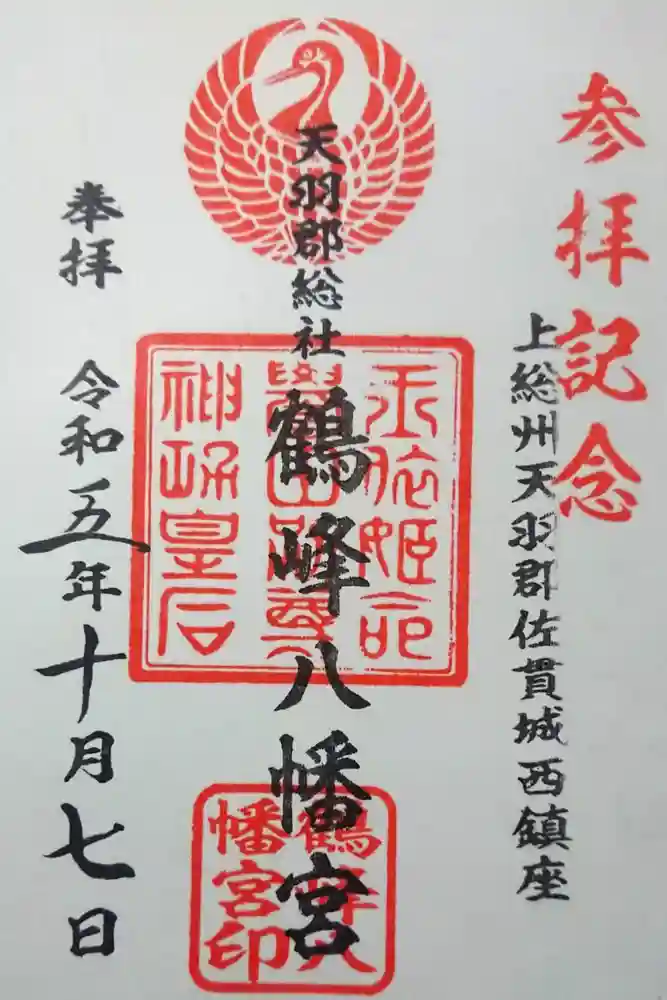 参拝記念
上総州天羽郡佐貫城西鎮座
天羽郡総社
鶴峰八幡宮
玉依姫命
神功皇后
鶴峰八
幡宮印
奉拝
令和五年十月七日